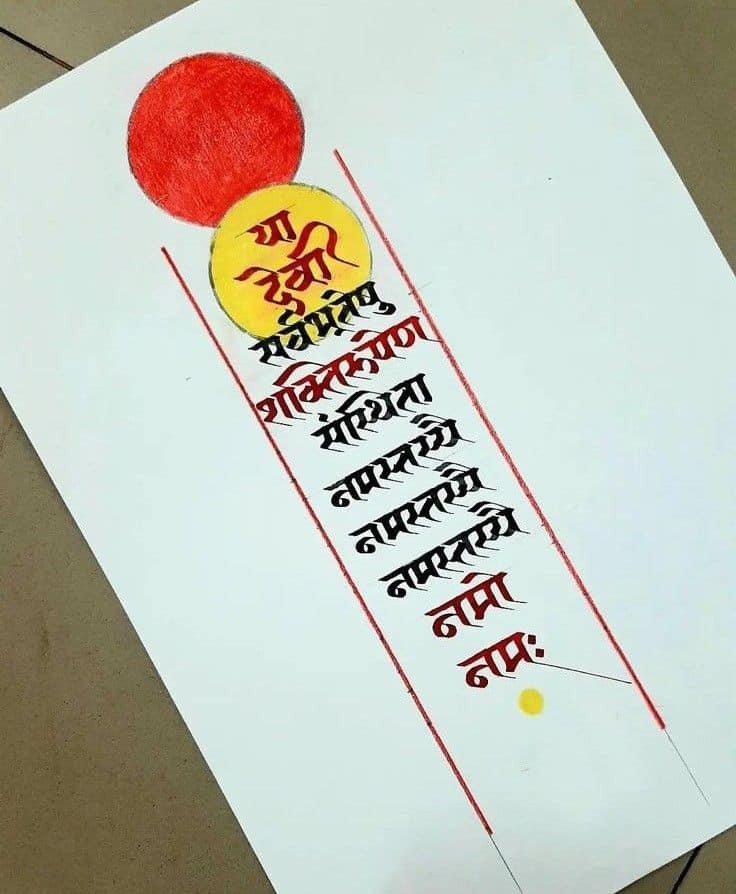 या
देवी
सर्वभूतेषु
शक्तिरूपेण
संस्थिता
नमस्तस्यै
नमस्तस्यै
नमस्तस्यै
नमो
नमः